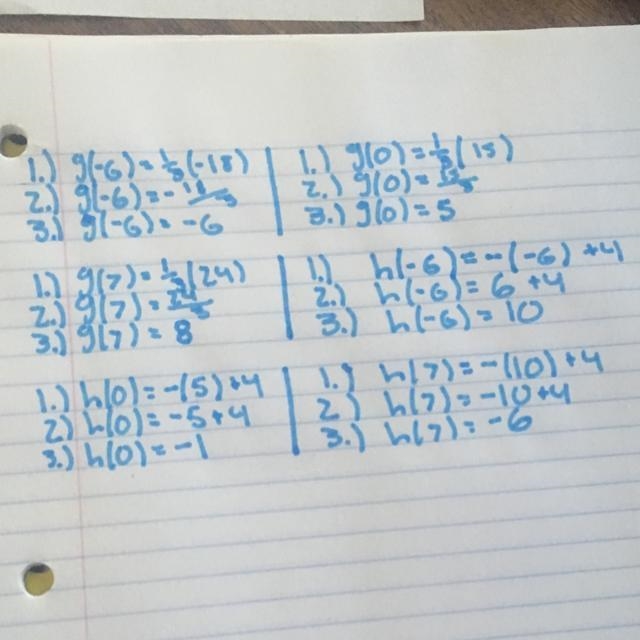 1.) g(-6) = 1/3(-18)
2.) g(-6) = -18/3
3.) g(-6) = -6
1.) g(0) = 1/3(15)
2.) g(0) = 15/3
3.) g(0) = 5
1.) g(7) = 1/3(24)
2.) g(7) = 24/3
3.) g(7) = 8
1.) h(-6) = -(-6) +4
2.) h(-6) = 6 +4
3.) h(-6) = 10
1.) h(0) = -(5)+4
2.) h(0) = -5+4
3.) h(0) = -1
1.) h(7) = -(10)+4
2.) h(7) = -10+4
3.) h(7) = -6